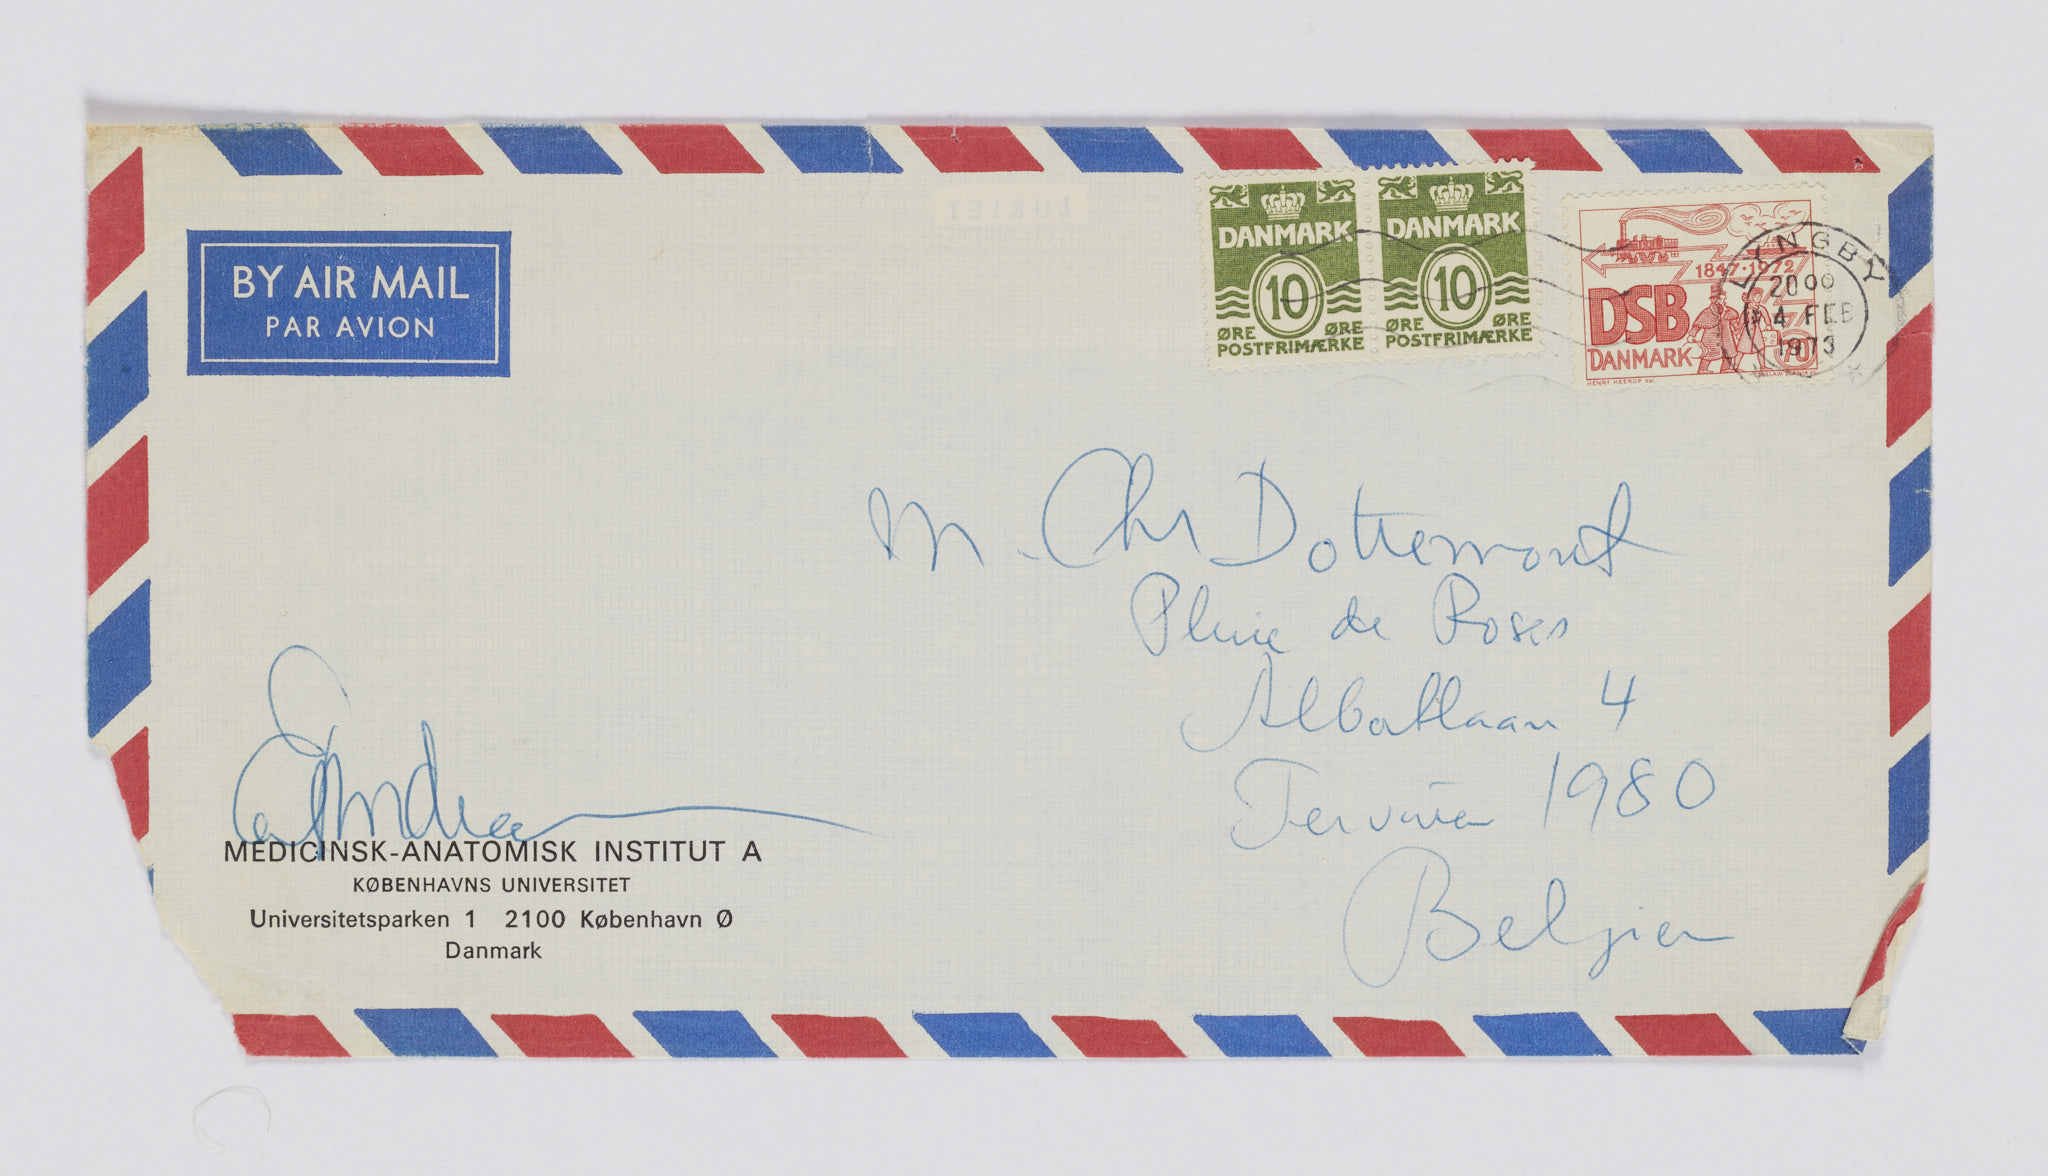 BY AIR MAIL
PAR AVION
DANMARK
10
ØRE ØRE
POSTFRIMÆRKE
DANMARK
10
ØRE ØRE
POSTFRIMÆRKE
1847·1972
DSB
DANMARK
70
HENRY HEERUP del.
LYNGBY
20 00
4 FEB
1973
M. Chr Dottemont
Pluie de Roses
Albertlaan 4
Tervuren 1980
Belgien
MEDICINSK-ANATOMISK INSTITUT A
KØBENHAVNS UNIVERSITET
Universitetsparken 1 2100 København Ø
Danmark